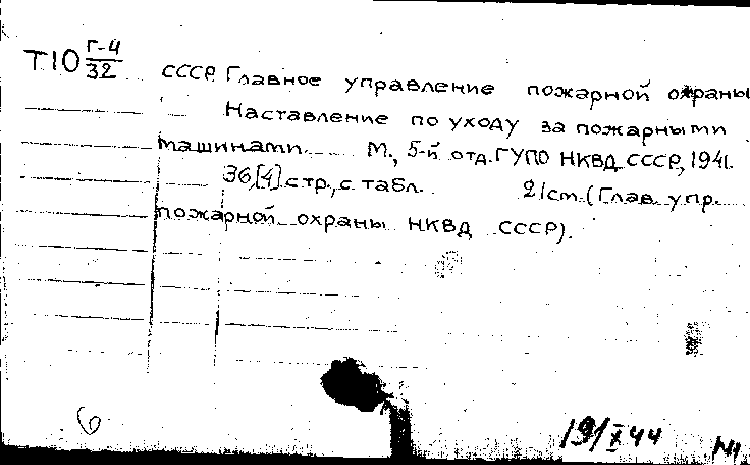 Т10 Г-4/32 СССР. Главное управление пожарной охраны
Наставление по уходу за пожарными
машинами. М., 5-й отд. ГУПО НКВД СССР, 1941.
36[4] стр., с табл. 21 cm. (Глав. упр.
пожарной охраны НКВД СССР).
6
19/X 44